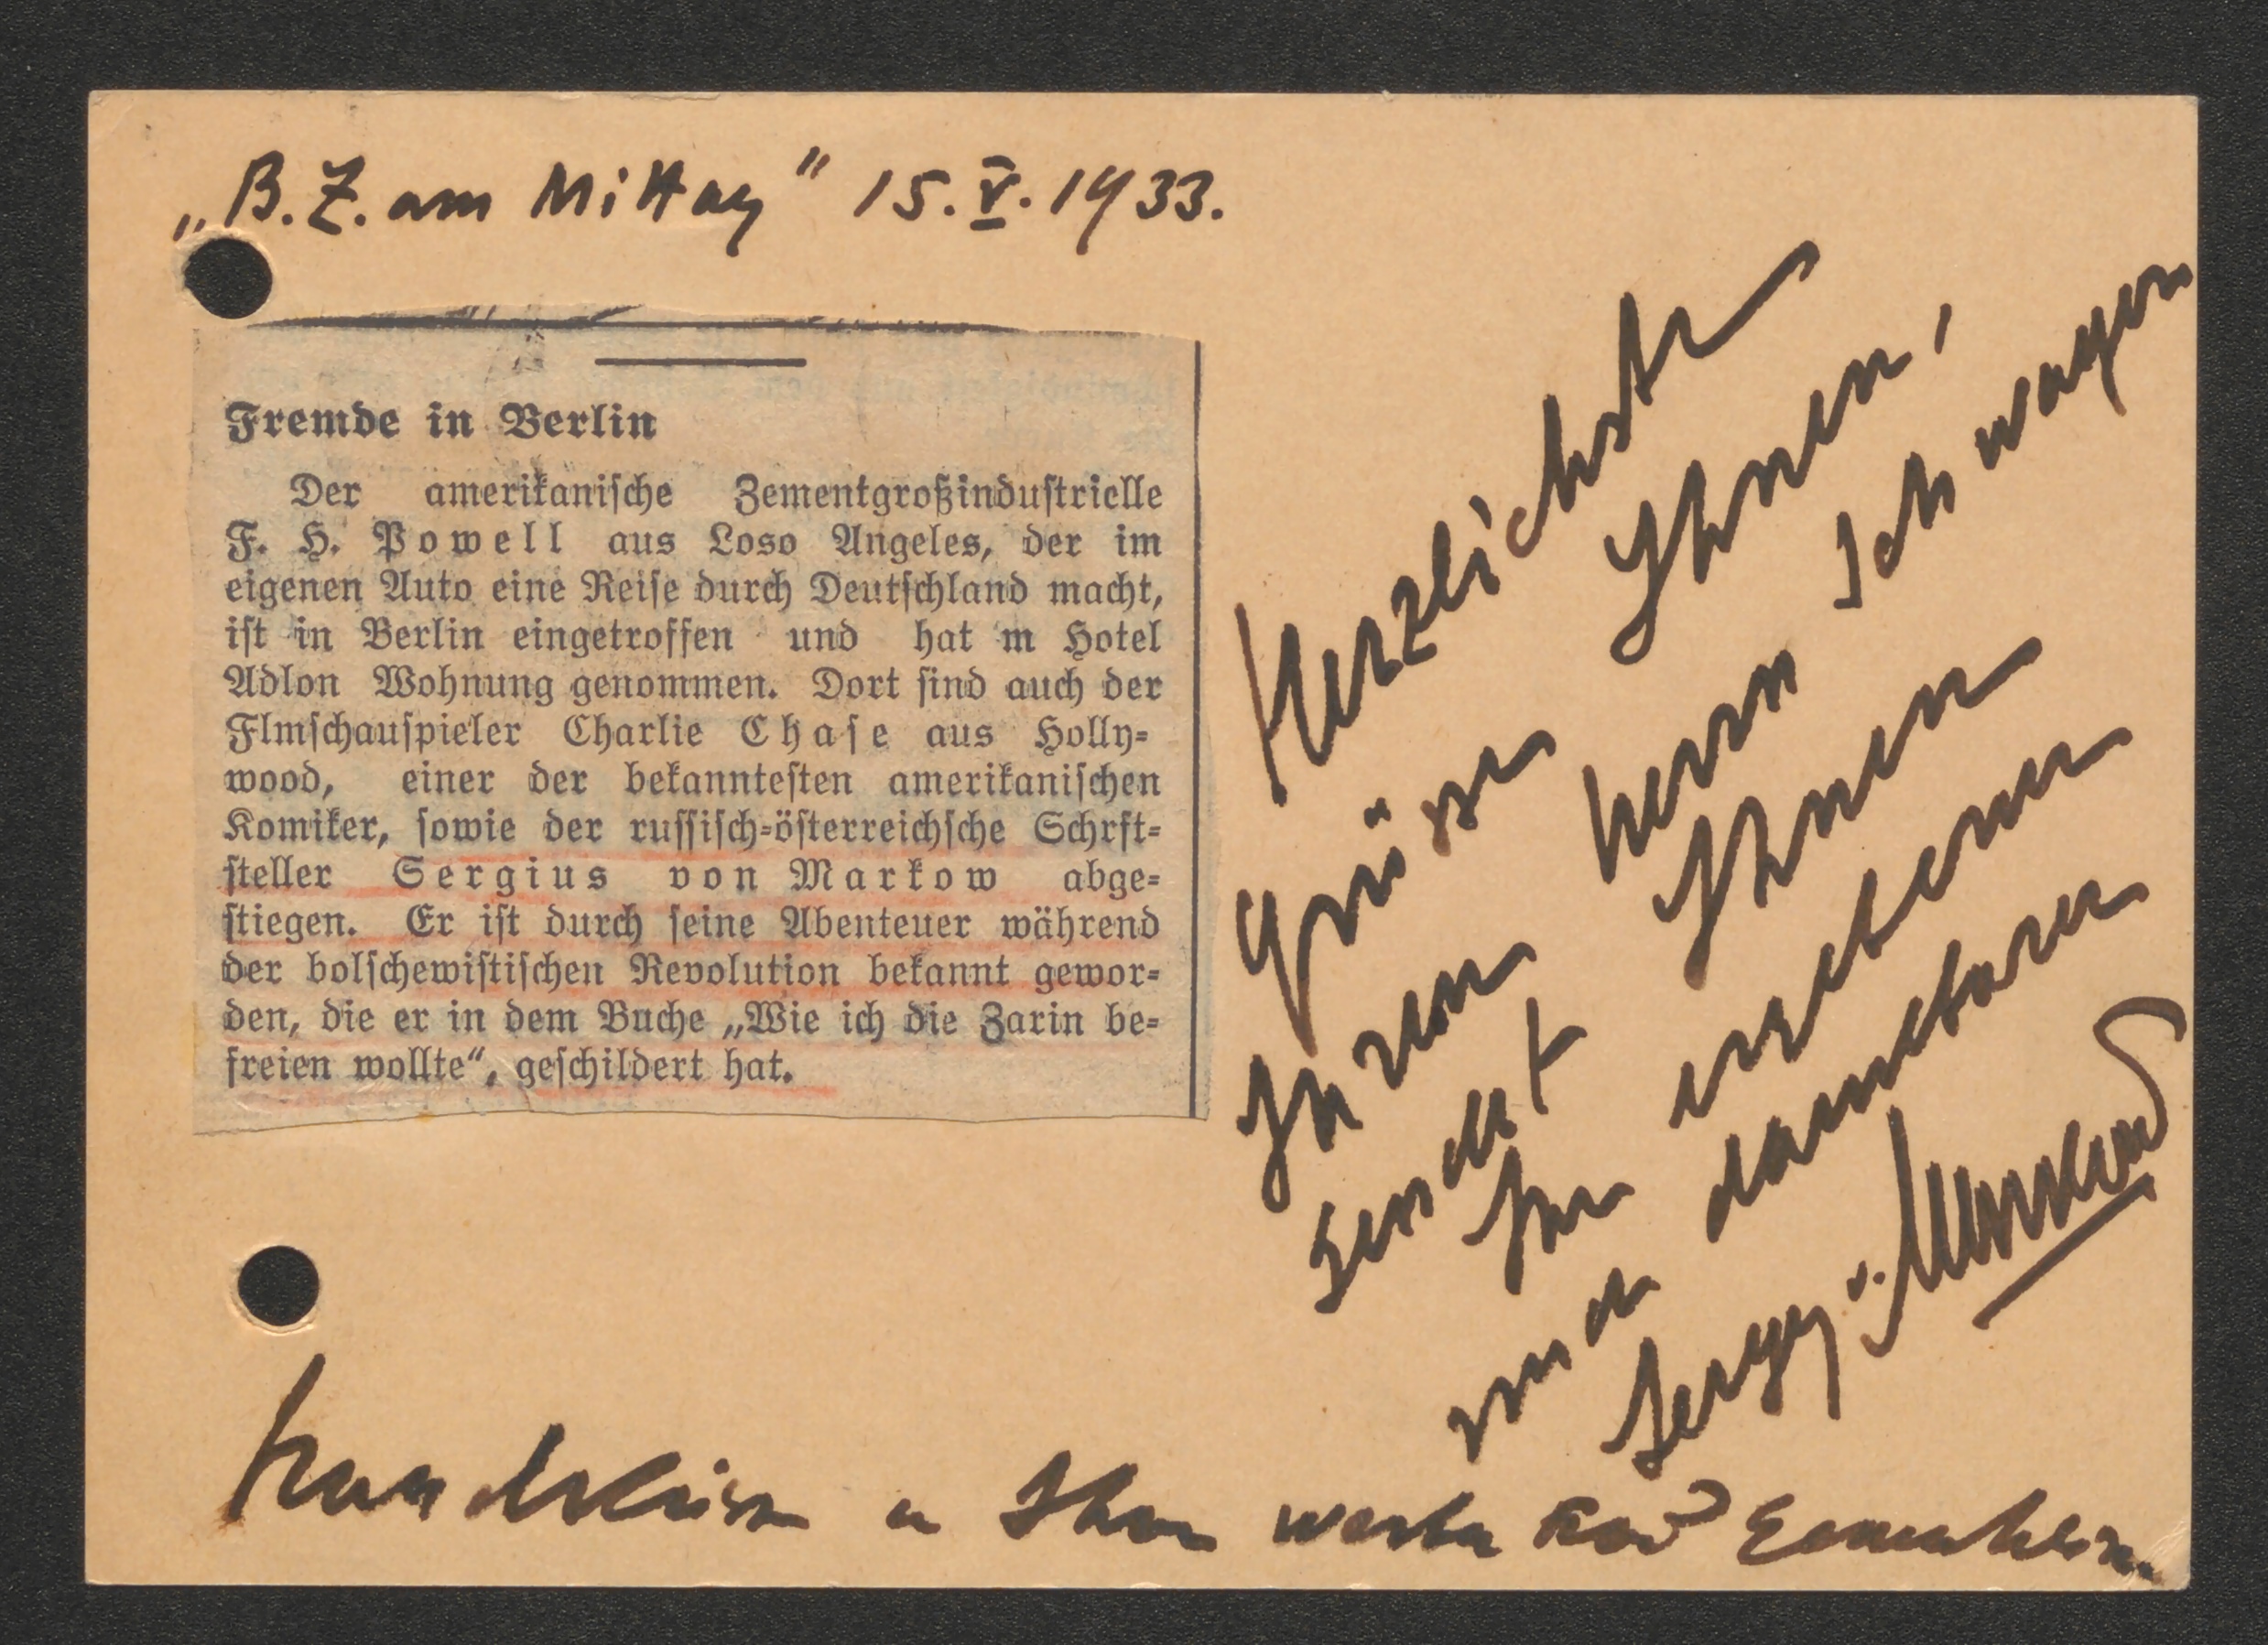 „B.Z. am Mittag" 15.V.1933.
Fremde in Berlin
Der amerikanische Zementgroßindustrielle
F. H. Powell aus Loso Angeles, der im
eigenen Auto eine Reise durch Deutschland macht,
ist in Berlin eingetroffen und hat m Hotel
Adlon Wohnung genommen. Dort sind auch der
Flmschauspieler Charlie Chase aus Holly-
wood, einer der bekanntesten amerikanischen
Komiker, sowie der russisch-österreichsche Schrft-
steller Sergius von Markow abge-
stiegen. Er ist durch seine Abenteuer während
der bolschewistischen Revolution bekannt gewor-
den, die er in dem Buche „Wie ich die Zarin be-
freien wollte“, geschildert hat.
Herzlichste
Grüsse Ihnen,
Ihren Herrn
sendet Ihnen
Ihr ergebener
und dankbarer
Sergej v. Markow
Handküsse